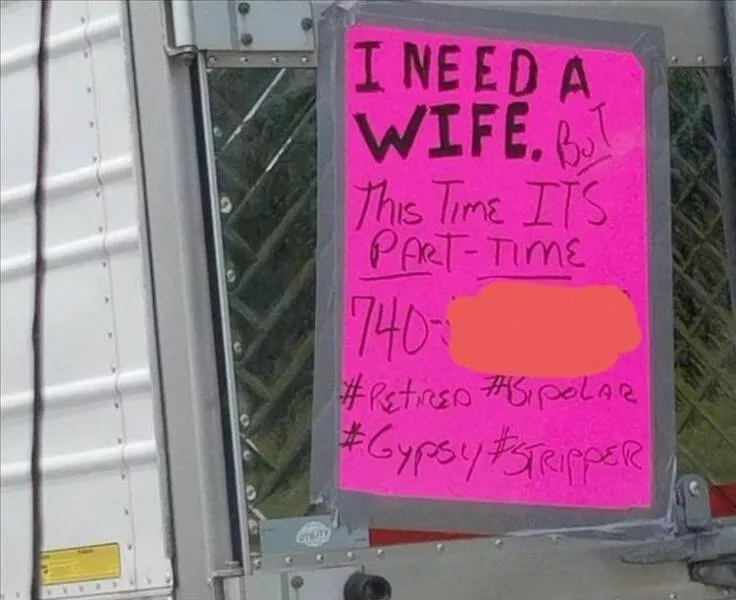 I NEED A
WIFE. BUT
This Time ITS
PART-TIME
740-
#RETIRED #BIPOLAR
#Gypsy #STRIPPER
UTILITY